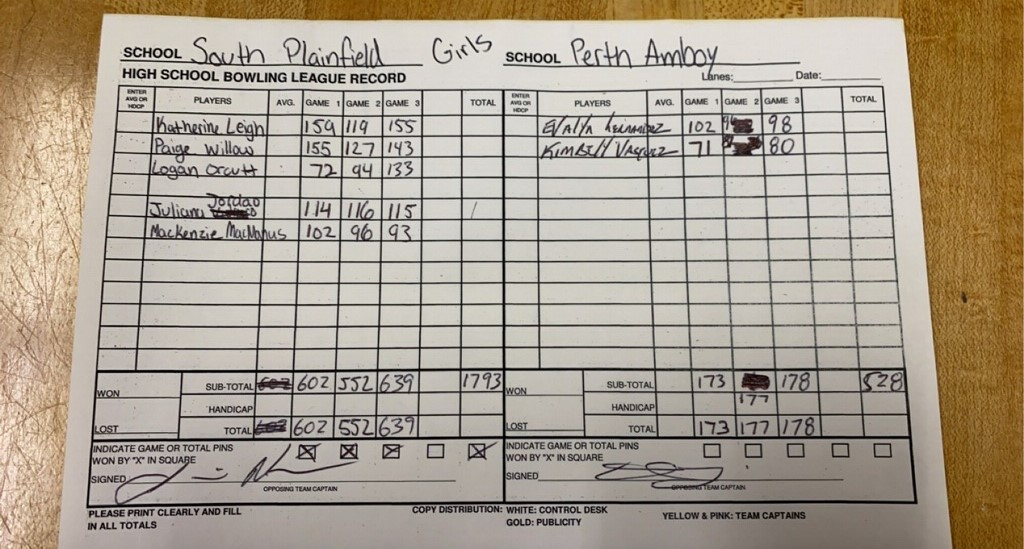 SCHOOL South Plainfield Girls SCHOOL Perth Amboy
HIGH SCHOOL BOWLING LEAGUE RECORD Lanes: Date:
ENTER AVG OR HDCP PLAYERS AVG. GAME 1 GAME 2 GAME 3 TOTAL ENTER AVG OR HDCP PLAYERS AVG. GAME 1 GAME 2 GAME 3 TOTAL
Katherine Leigh 159 119 155 102 98
Paige Willow 155 127 143 71 80
Logan Orcutt 72 94 133
Juliana Jordao 114 116 115
Mackenzie MacManus 102 96 93
WON SUB-TOTAL 602 552 639 1793 WON SUB-TOTAL 173 178 528
HANDICAP HANDICAP 177
LOST TOTAL 602 552 639 LOST TOTAL 173 177 178
INDICATE GAME OR TOTAL PINS INDICATE GAME OR TOTAL PINS
WON BY "X" IN SQUARE WON BY "X" IN SQUARE
SIGNED SIGNED
OPPOSING TEAM CAPTAIN OPPOSING TEAM CAPTAIN
PLEASE PRINT CLEARLY AND FILL COPY DISTRIBUTION: WHITE: CONTROL DESK YELLOW & PINK: TEAM CAPTAINS
IN ALL TOTALS GOLD: PUBLICITY